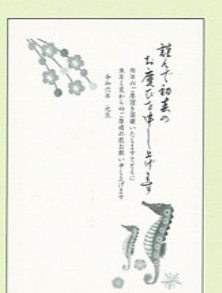 謹んで初春の
お慶びを申し上げます
昨年のご厚誼を深謝いたしますとともに
本年も変わらぬご厚情の程お願い申し上げます
令和六年 元旦